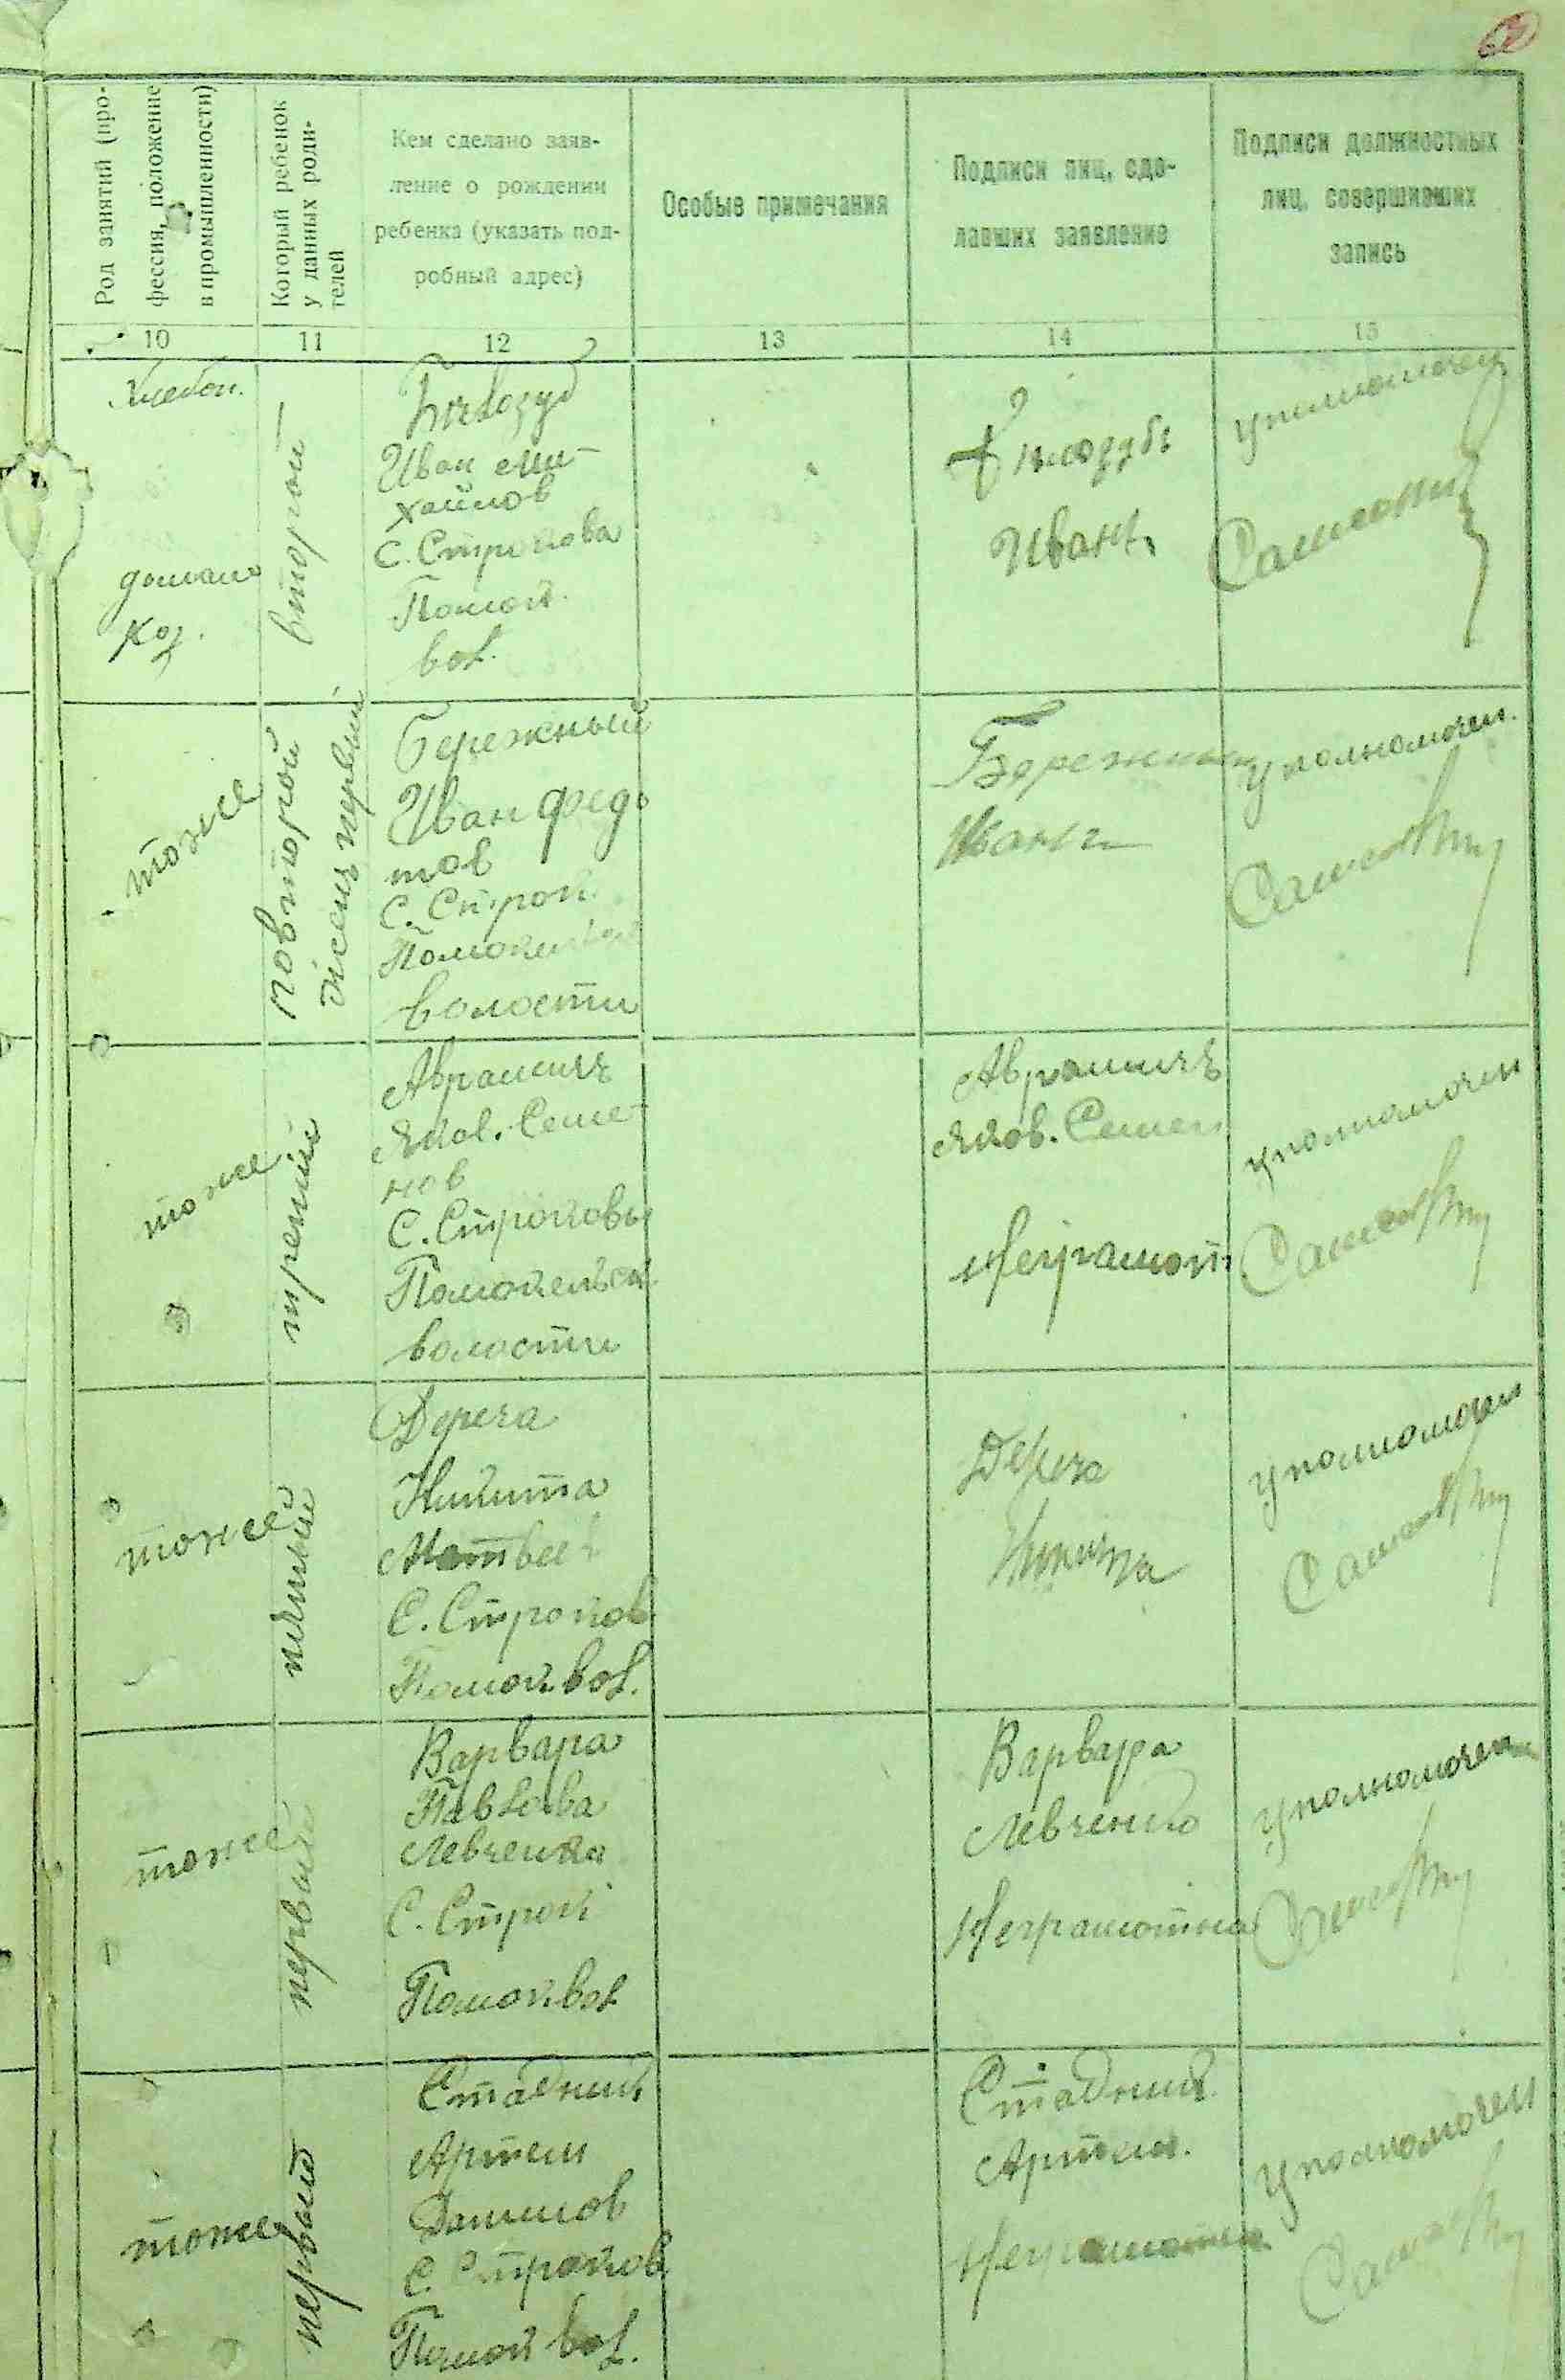 Род занятий (про-
фессия, положение
в промышленности)
Который ребенок
у данных роди-
телей
Кем сделано заяв-
ление о рождении
ребенка (указать под-
робный адрес)
Особые примечания
Подписи лиц, сде-
лавших заявление
Подписи должностных
лиц, совершивших
запись
10
11
12
13
14
15
Хлебоп.
второй
Иван Ми-
хайлов
С. Строкова
Помок.
вол.
Иванъ
уполномочен
тоже
повторой
жене первый
Бережный
Иван Федо
тов
С. Строк.
Помокельск
волости
Бережный
Иванъ
уполномочен.
тоже
третий
Аврамичъ
Яков. Семе-
нов
С. Строковы
Помокельск
волости
Аврамичъ
Яков. Семен
Неграмотн
уполномочен
тоже
пятый
Дереча
Никита
Матвеев
С. Строков
Помок. вол.
Дереча
Никита
уполномочен
тоже
первый
Варвара
Павлова
Левченко
С. Строк
Помок. вол
Варвара
Левченко
Неграмотна
уполномочен
тоже
первый
Стадний
Артем
Данилов
С. Строков
Помок вол.
Стадний
Артем.
Неграмотен
уполномочен